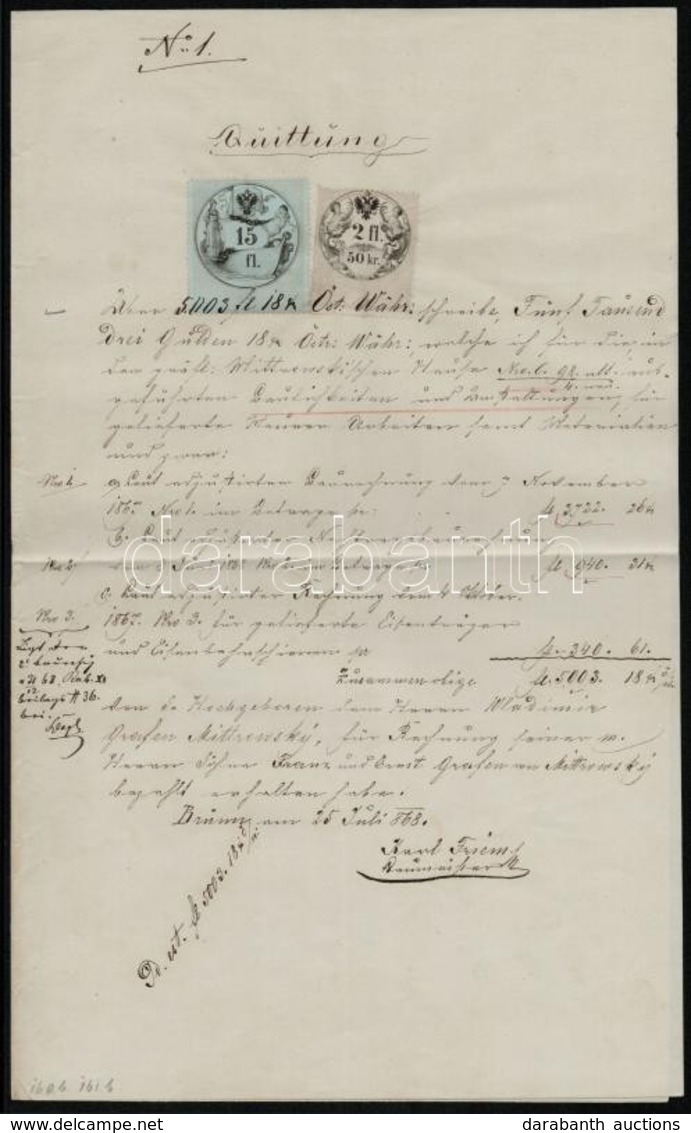 No 1.
Quittung
15 fl.
2 fl. 50 kr.
Über 5003 fl 18 x Öst: Währ: schreibe, Fünf Tausend
drei Gulden 18 x Östr: Währ:, welche ich für die, in
den gräfl: Mittrowskischen Hause Nro. C. 98 alt aus-
4 neu.
geführten Baulichkeiten und
gelieferte Maurer Arbeiten samt Materialien
und zwar:
Nro 1. a, Laut adjustirten Baurechnung vom 7 November
1867 Nro 1. im Betrage pr: fl 3722. 26 x
b. Laut adjustirter
Nro 2 fl 940. 31 x
c. Laut adjustirter Rechnung dem 4 Oktober.
Nro 3. 1867. Nro 3. für gelieferte Eisenträger
und Eisenbahnschienen pr fl. 340. 61.
Zusammen obige fl. 5003. 18 x
von Sr Hochgeboren dem Herrn Wladimir
Grafen Mittrowský, für Rechnung seiner m.
Herrn Söhne Franz und Ernst Grafen von Mittrowský
bezahlt erhalten habe.
Brünn am 25 Juli 868.
Karl
Baumeister
D. est. fl 5003. 18 x
160 b 161 b
darabanth
darabanth auctions